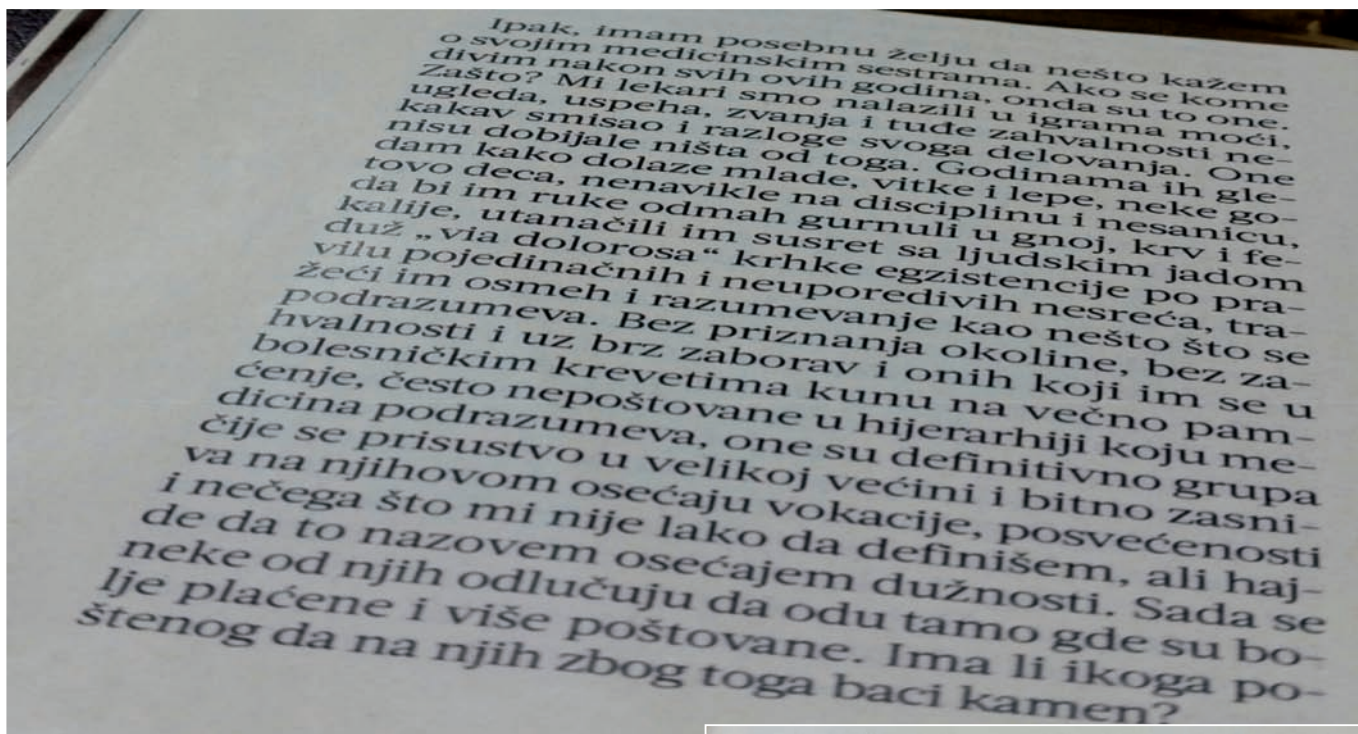 Ipak, imam posebnu želju da nešto kažem
o svojim medicinskim sestrama. Ako se kome
divim nakon svih ovih godina, onda su to one.
Zašto? Mi lekari smo nalazili u igrama moći,
ugleda, uspeha, zvanja i tuđe zahvalnosti ne-
kakav smisao i razloge svoga delovanja. One
nisu dobijale ništa od toga. Godinama ih gle-
dam kako dolaze mlade, vitke i lepe, neke go-
tovo deca, nenavikle na disciplinu i nesanicu,
da bi im ruke odmah gurnuli u gnoj, krv i fe-
kalije, utanačili im susret sa ljudskim jadom
duž „via dolorosa“ krhke egzistencije po pra-
vilu pojedinačnih i neuporedivih nesreća, tra-
žeći im osmeh i razumevanje kao nešto što se
podrazumeva. Bez priznanja okoline, bez za-
hvalnosti i uz brz zaborav i onih koji im se u
bolesničkim krevetima kunu na večno pam-
ćenje, često nepoštovane u hijerarhiji koju me-
dicina podrazumeva, one su definitivno grupa
čije se prisustvo u velikoj većini i bitno zasni-
va na njihovom osećaju vokacije, posvećenosti
i nečega što mi nije lako da definišem, ali haj-
de da to nazovem osećajem dužnosti. Sada se
neke od njih odlučuju da odu tamo gde su bo-
lje plaćene i više poštovane. Ima li ikoga po-
štenog da na njih zbog toga baci kamen?